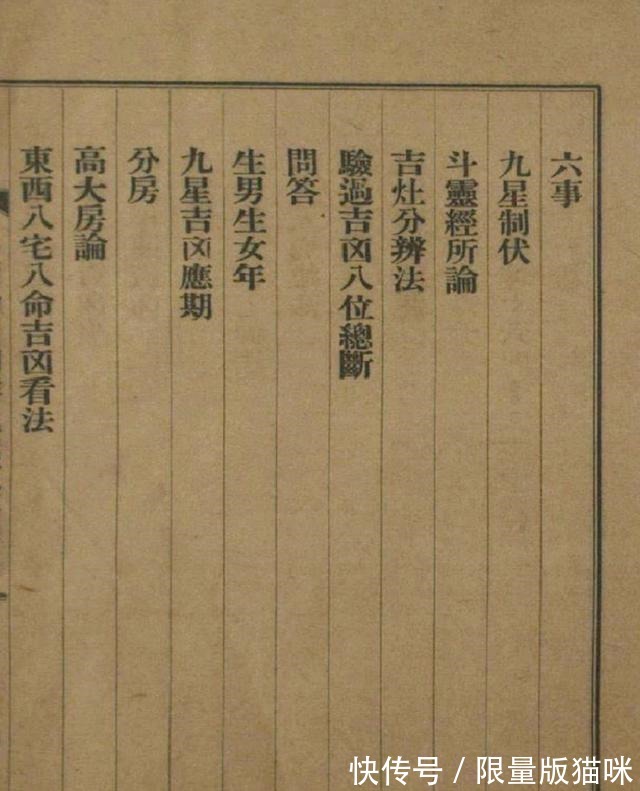 六事
九星制伏
斗靈經所論
吉灶分辨法
驗過吉凶八位總斷
問答
生男生女年
九星吉凶應期
分房
高大房論
東西八宅八命吉凶看法
快传号/限量版猫咪